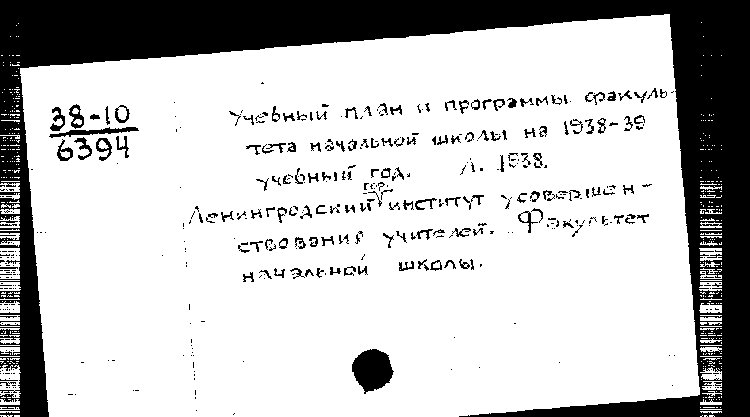 38-10
6394
Учебный план и программы факуль-
тета начальной школы на 1938-39
учебный год. Л. 1938.
гор.
Ленинградский институт усовершен-
ствования учителей. Факультет
начальной школы.